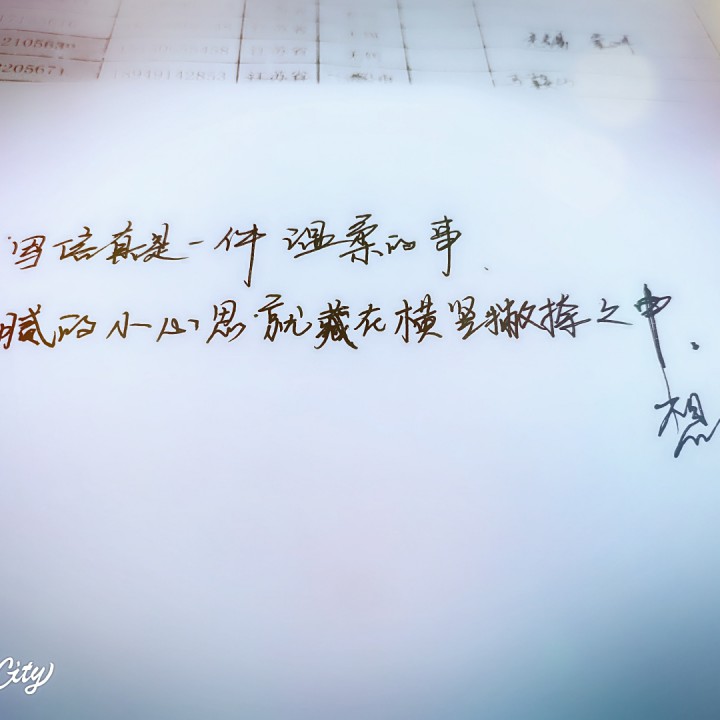 2105630
205671 18949142853 江苏省
写信真是一件温柔的事
腻的小心思就藏在横竖撇捺之中.
想
City